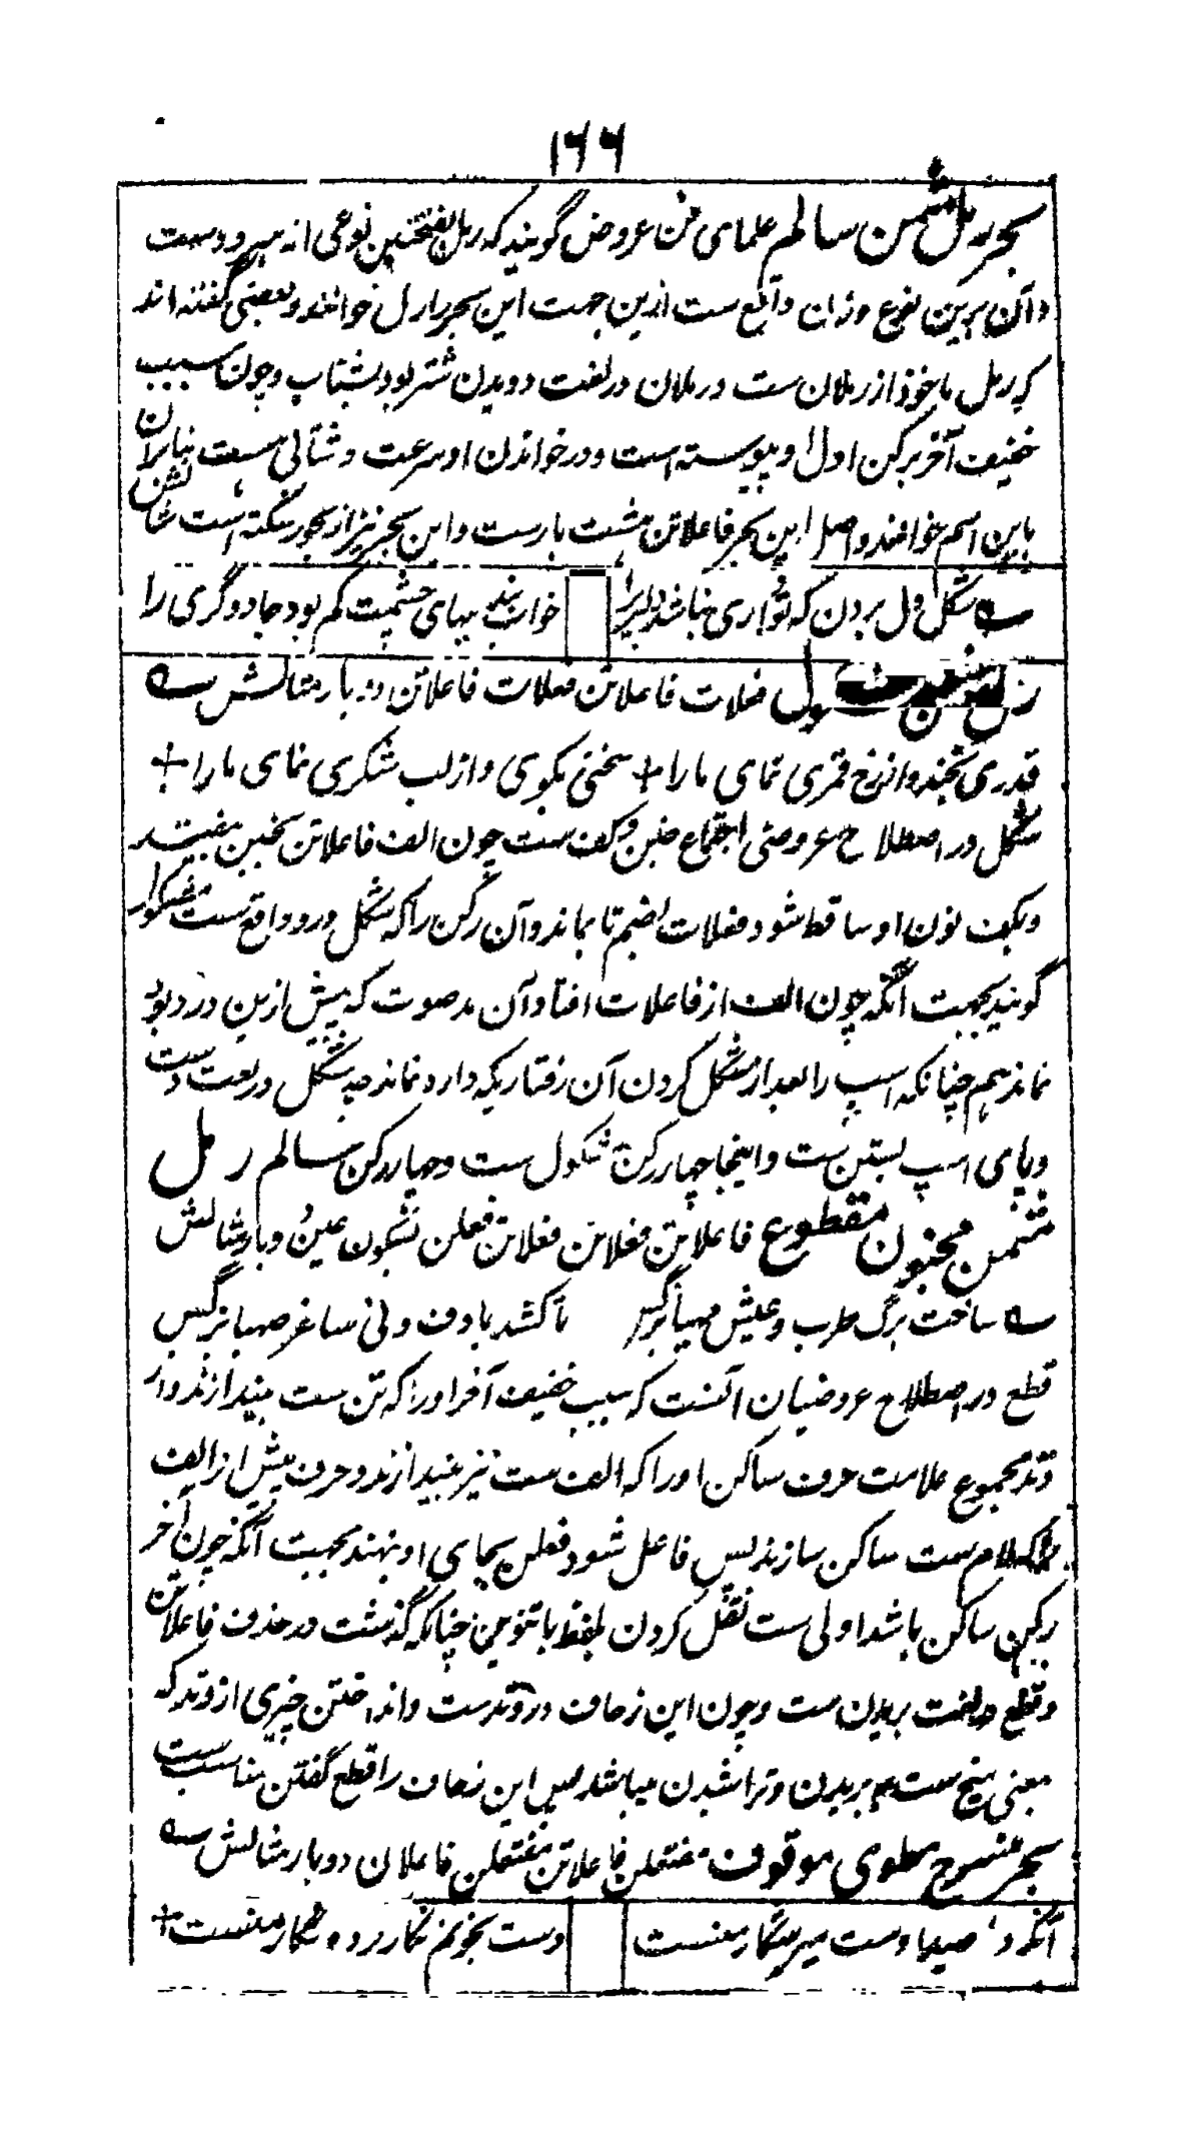 ۱۶۶
بحر رمل مثمن سالم علمای فن عروض گویند که رمل بفتحتین نوعی از سرودست
و آن برین نوع وزن واقع ست ازین جهت این بحر را رمل خوانند و بعضی گفته اند
که رمل ماخوذ از رملان ست و رملان در لغت دویدن شتر بود بشتاب و چون سبب
خفیف آخر برکن اول او پیوسته است و در خواندن او سرعت و شتابی هست بنابران
باین اسم خوانند و اصل این بحر فاعلاتن هشت بارست و این بحر نیز از بحور
شکل دل بردن که تو داری نباشد دلبری را خواب بندیهای چشمت کم بود جادوگری را
رمل مثمن مشکول فعلات فاعلاتن فعلات فاعلاتن دو بار مثالش
قدری بخند و از رخ قمری نمای ما را + سخنی بگوی و از لب شکری نمای ما را +
شکل در اصطلاح عروضی اجتماع خبن و کف ست چون الف فاعلاتن بخبن بیفتد
و بکف نون او ساقط شود فعلات بضم تا بماند و آن رکن را که شکل درو واقع ست مشکول
گویند بجهت آنکه چون الف از فاعلات افتاد آن مد صوت که پیش ازین درو بود
نماند هم چنانکه اسپ را بعد از مشکل کردن آن رفتاریکه دارد نماند چه شکل در لغت دست
و پای اسپ بستن ست و اینجا چهار رکن مشکول ست و چهار رکن سالم رمل
مثمن مخبون مقطوع فاعلاتن فعلاتن فعلاتن فعلن بسکون عین دو بار مثالش
ساخت برگ طرب و عیش مهیا نرگس تا کشد با دف و نی ساغر صهبا نرگس
قطع در اصطلاح عروضیان آنست که سبب خفیف آخر او را که تن ست بیندازند و از
وتد مجموع علامت حرف ساکن او را که الف ست نیز بیندازند و حرف پیش از الف
که لام ست ساکن سازند پس فاعل شود فعلن بجای او بنهند بجهت آنکه چون آخر
رکن ساکن باشد اولی ست نقل کردن بلفظ با تنوین چنانکه گذشت در حذف فاعلاتن
و قطع در لغت بریدن ست و چون این زحاف در وتدست و انداختن چیزی از وتد که
بمعنی میخ ست بریدن و تراشیدن میباشد پس این زحاف را قطع گفتن مناسب ست
بحر منسرح مطوی موقوف مفتعلن فاعلاتن مفتعلن فاعلان دو بار مثالش
آنکه دل صید اوست میر شکار منست دست بخونم نگار برده نگار منست +